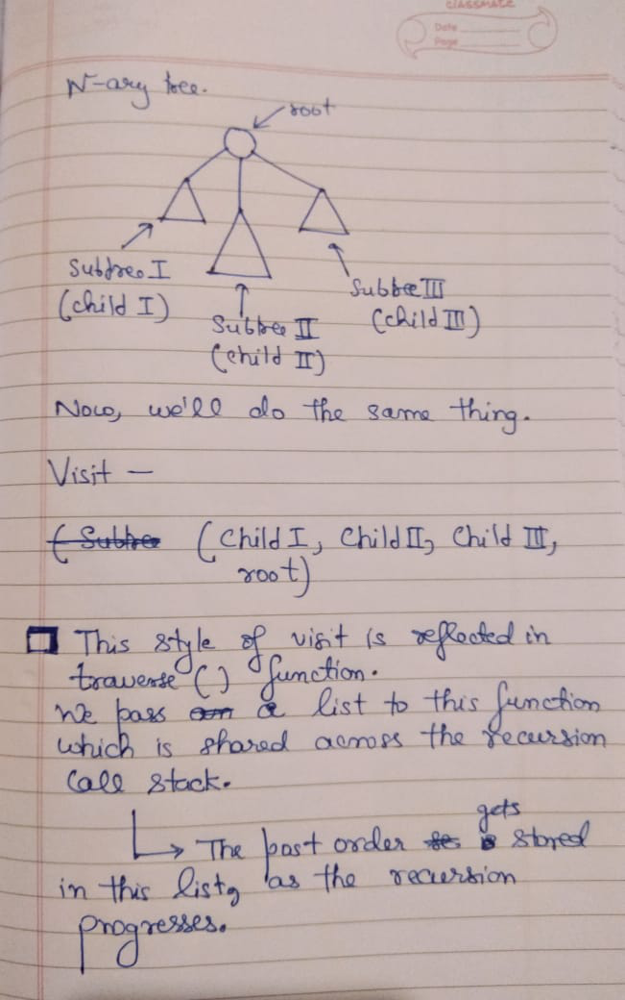 classmate
Date
Page
N-ary tree.
root
Subtree I
(child I)
Subtree II
(child II)
Subtree III
(child III)
Now, we'll do the same thing.
Visit —
(Child I, Child II, Child III,
root)
This style of visit is reflected in
traverse() function.
We pass a list to this function
which is shared across the recursion
call stack.
gets
↳ The post order stored
in this list, as the recursion
progresses.